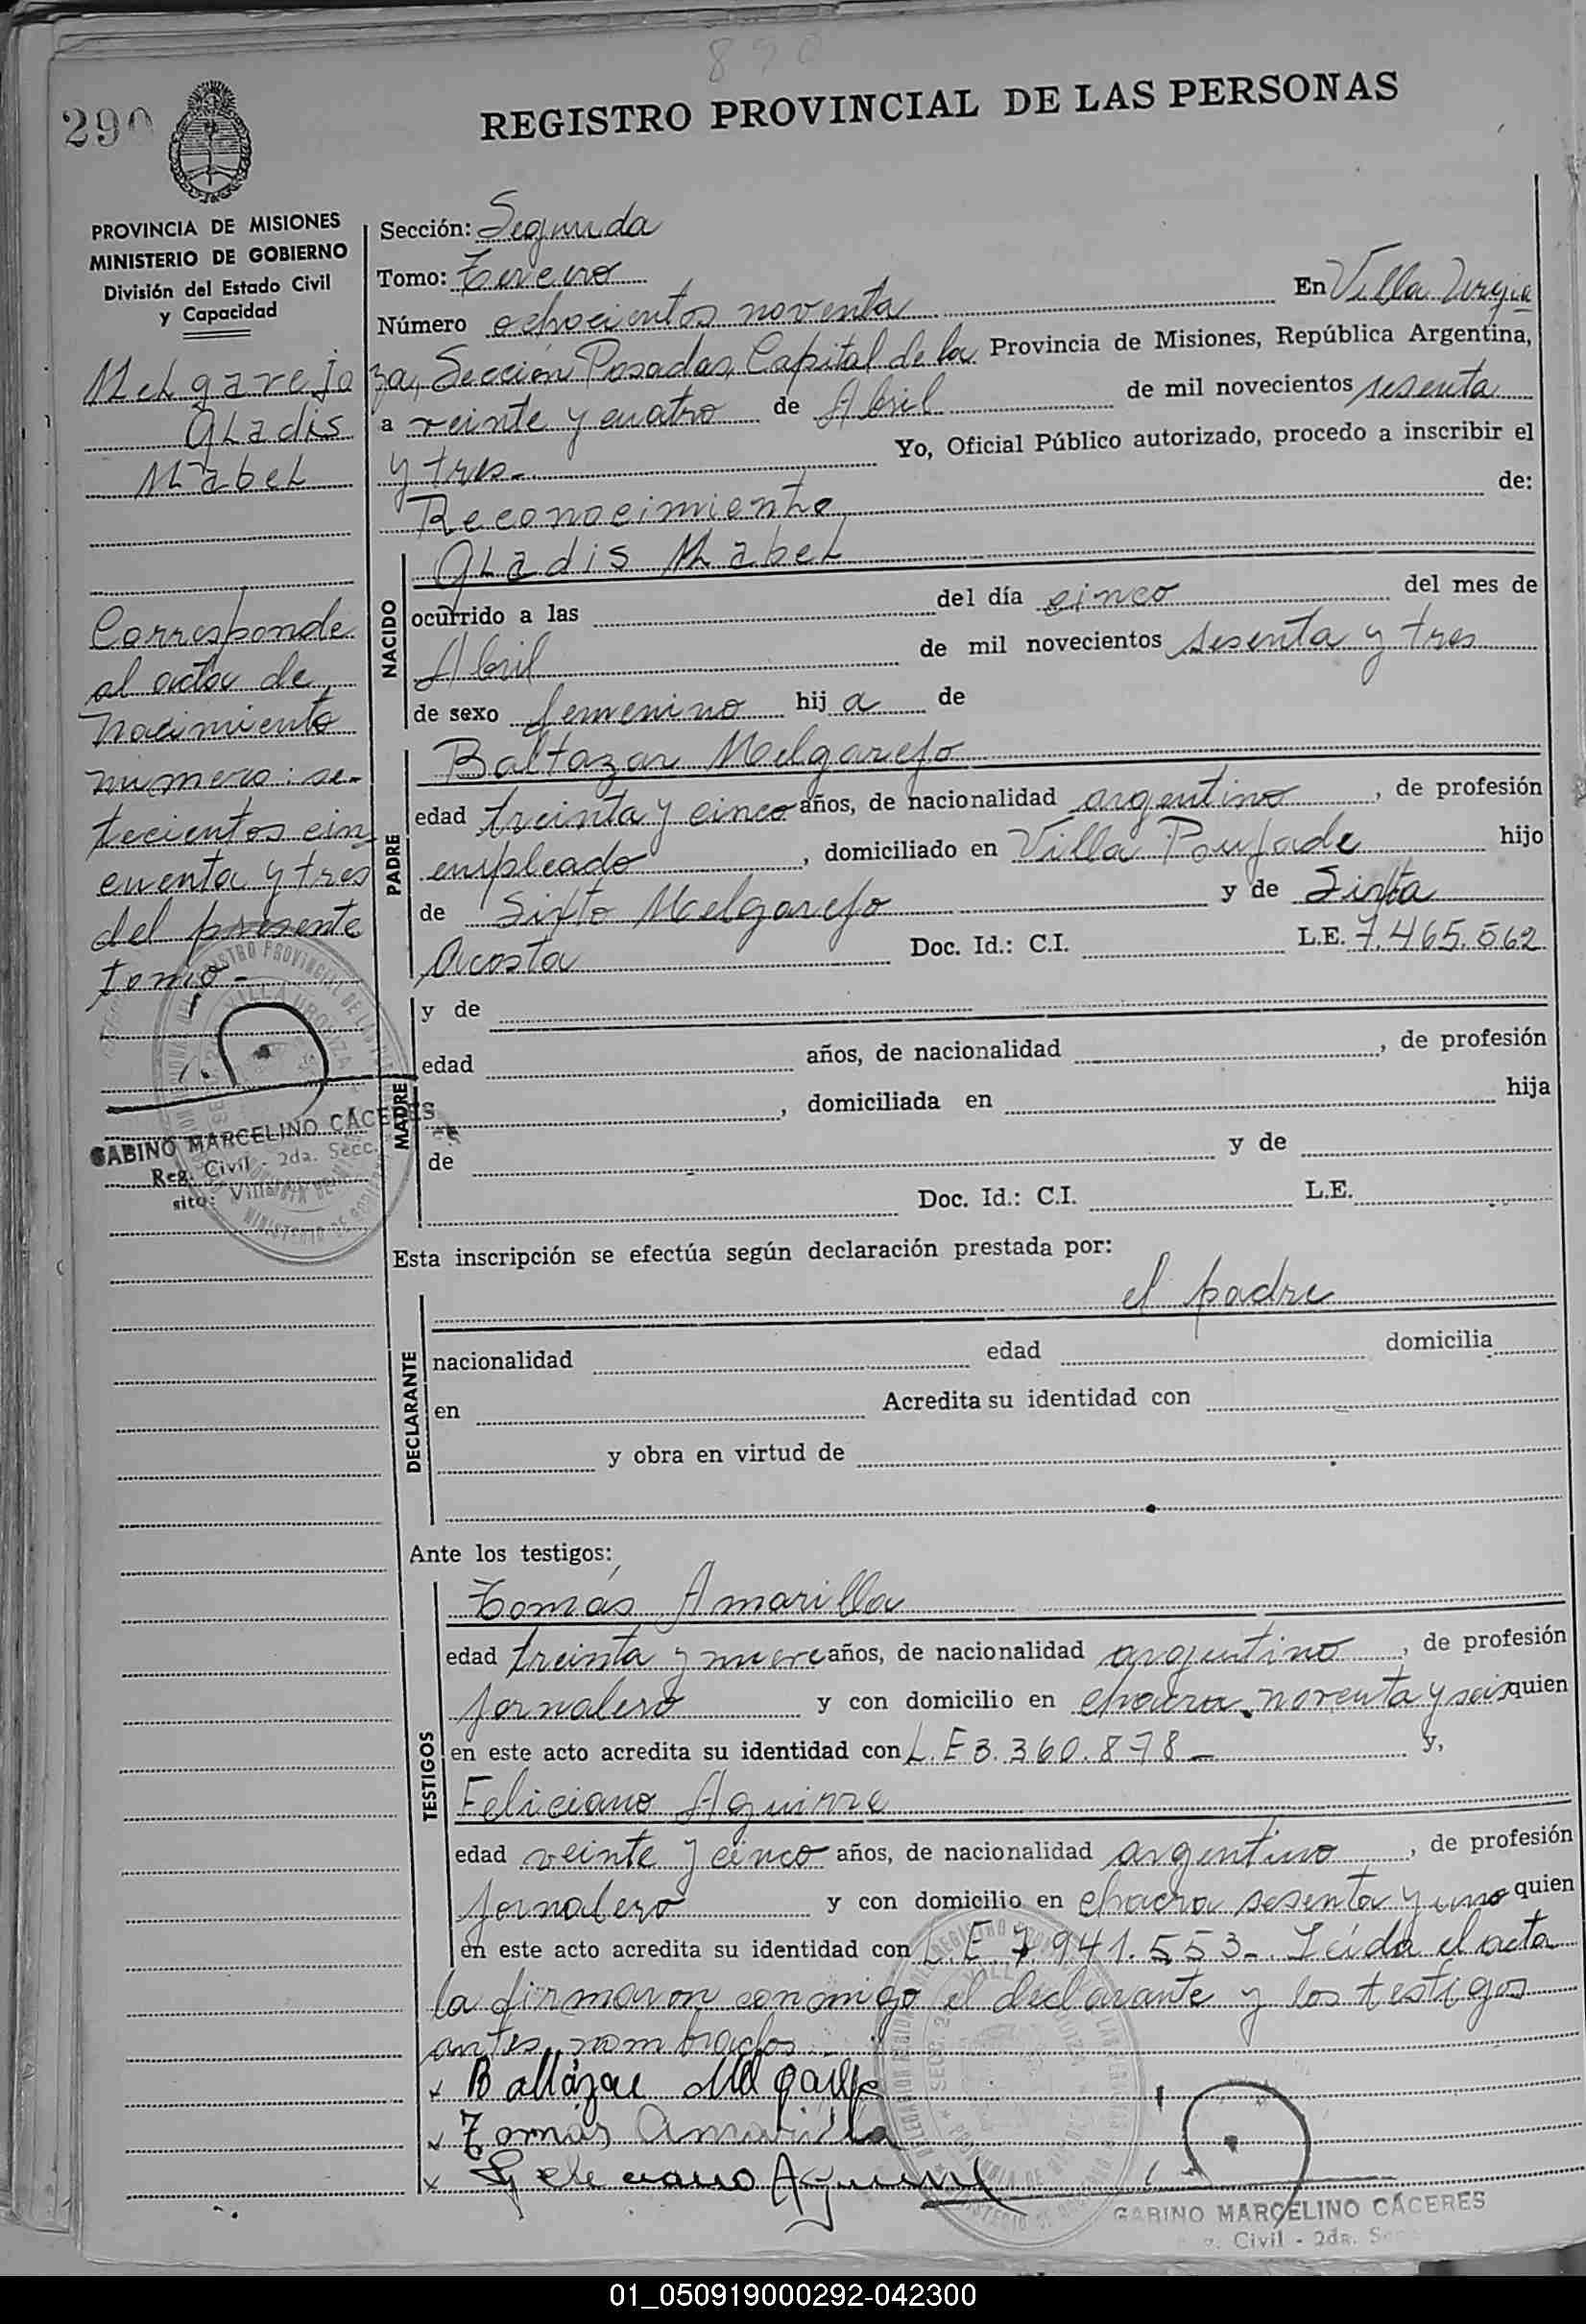 890
290
REGISTRO PROVINCIAL DE LAS PERSONAS
PROVINCIA DE MISIONES
MINISTERIO DE GOBIERNO
División del Estado Civil
y Capacidad
Melgarejo
Gladis
Mabel
Corresponde
al acta de
nacimiento
número: se-
tecientos cin
cuenta y tres
del presente
tomo-
GABINO MARCELINO CÁCERES
Reg. Civil 2da. Secc.
sito: Villa
Sección: Segunda
Tomo: Tercero
Número ochocientos noventa En Villa Urqui
za, Sección Posadas, Capital de la Provincia de Misiones, República Argentina,
a veinte y cuatro de Abril de mil novecientos sesenta
y tres.- Yo, Oficial Público autorizado, procedo a inscribir el
Reconocimiento de:
NACIDO
Gladis Mabel
ocurrido a las del día cinco del mes de
Abril de mil novecientos sesenta y tres
de sexo femenino hij a de
PADRE
Baltazar Melgarejo
edad treinta y cinco años, de nacionalidad argentino, de profesión
empleado, domiciliado en Villa Poujade hijo
de Sixto Melgarejo y de Sixta
Acosta Doc. Id.: C.I. L.E. 7.465.562
MADRE
y de
edad años, de nacionalidad , de profesión
, domiciliada en hija
de y de
Doc. Id.: C.I. L.E.
Esta inscripción se efectúa según declaración prestada por:
DECLARANTE
el padre
nacionalidad edad domicilia
en Acredita su identidad con
y obra en virtud de
Ante los testigos:
TESTIGOS
Tomás Amarilla
edad treinta y nueve años, de nacionalidad argentino, de profesión
jornalero y con domicilio en chacra noventa y seis quien
en este acto acredita su identidad con L.E 3.360.878- y,
Feliciano Aguirre
edad veinte y cinco años, de nacionalidad argentino, de profesión
jornalero y con domicilio en chacra sesenta y uno quien
en este acto acredita su identidad con L.E. 7.941.553-. Leída el acta
la firmaron conmigo el declarante y los testigos
antes nombrados.-
x Baltazar Melgarejo
x Tomás Amarilla
x Feleciano Aguirre
GABINO MARCELINO CÁCERES
Civil - 2da.
01_050919000292-042300